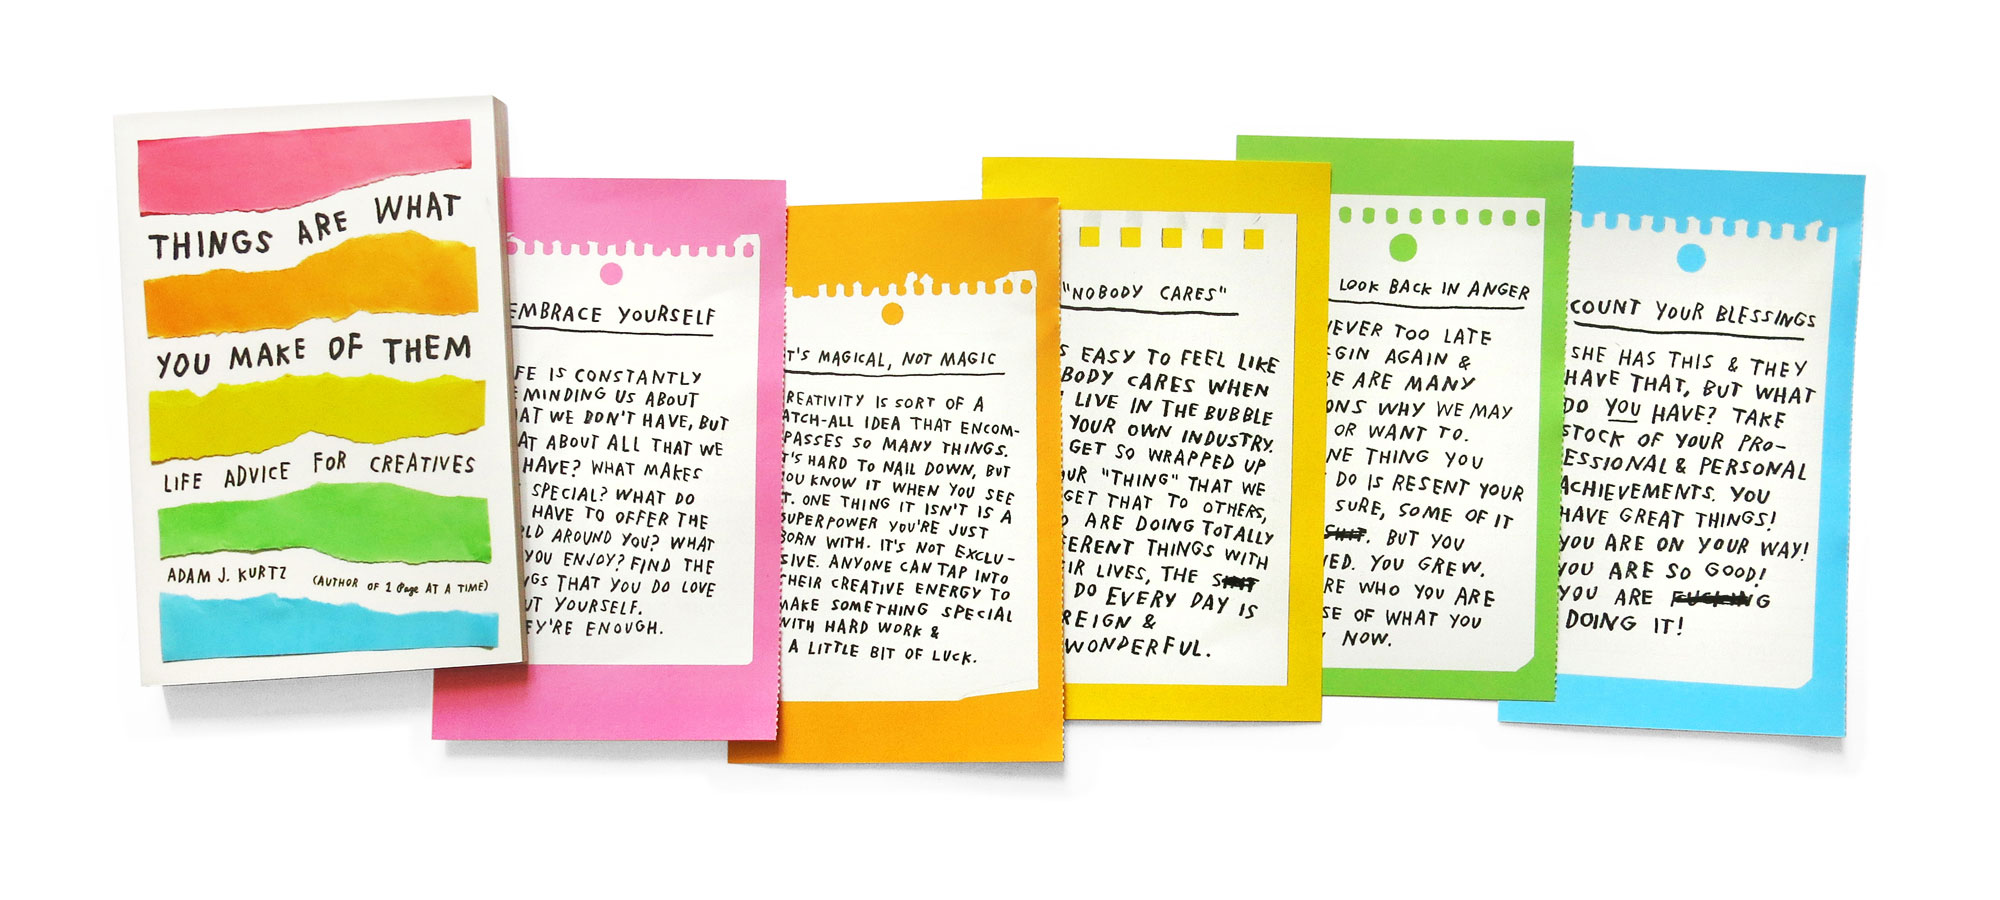 THINGS ARE WHAT
YOU MAKE OF THEM
LIFE ADVICE FOR CREATIVES
ADAM J. KURTZ
(AUTHOR OF 1 Page AT A TIME)
EMBRACE YOURSELF
FE IS CONSTANTLY
MINDING US ABOUT
AT WE DON'T HAVE, BUT
AT ABOUT ALL THAT WE
HAVE? WHAT MAKES
SPECIAL? WHAT DO
HAVE TO OFFER THE
LD AROUND YOU? WHAT
YOU ENJOY? FIND THE
NGS THAT YOU DO LOVE
UT YOURSELF.
EY'RE ENOUGH.
T'S MAGICAL, NOT MAGIC
REATIVITY IS SORT OF A
ATCH-ALL IDEA THAT ENCOM-
PASSES SO MANY THINGS.
T'S HARD TO NAIL DOWN, BUT
YOU KNOW IT WHEN YOU SEE
T. ONE THING IT ISN'T IS A
SUPERPOWER YOU'RE JUST
BORN WITH. IT'S NOT EXCLU-
SIVE. ANYONE CAN TAP INTO
THEIR CREATIVE ENERGY TO
MAKE SOMETHING SPECIAL
WITH HARD WORK &
A LITTLE BIT OF LUCK.
"NOBODY CARES"
S EASY TO FEEL LIKE
BODY CARES WHEN
LIVE IN THE BUBBLE
YOUR OWN INDUSTRY.
GET SO WRAPPED UP
UR "THING" THAT WE
GET THAT TO OTHERS,
ARE DOING TOTALLY
FERENT THINGS WITH
EIR LIVES, THE SHIT
DO EVERY DAY IS
REIGN &
WONDERFUL.
LOOK BACK IN ANGER
NEVER TOO LATE
EGIN AGAIN &
RE ARE MANY
ONS WHY WE MAY
OR WANT TO.
NE THING YOU
DO IS RESENT YOUR
SURE, SOME OF IT
SHIT. BUT YOU
VED. YOU GREW.
RE WHO YOU ARE
SE OF WHAT YOU
NOW.
COUNT YOUR BLESSINGS
SHE HAS THIS & THEY
HAVE THAT, BUT WHAT
DO YOU HAVE? TAKE
STOCK OF YOUR PRO-
ESSIONAL & PERSONAL
ACHIEVEMENTS. YOU
HAVE GREAT THINGS!
YOU ARE ON YOUR WAY!
YOU ARE SO GOOD!
YOU ARE FUCKING
DOING IT!